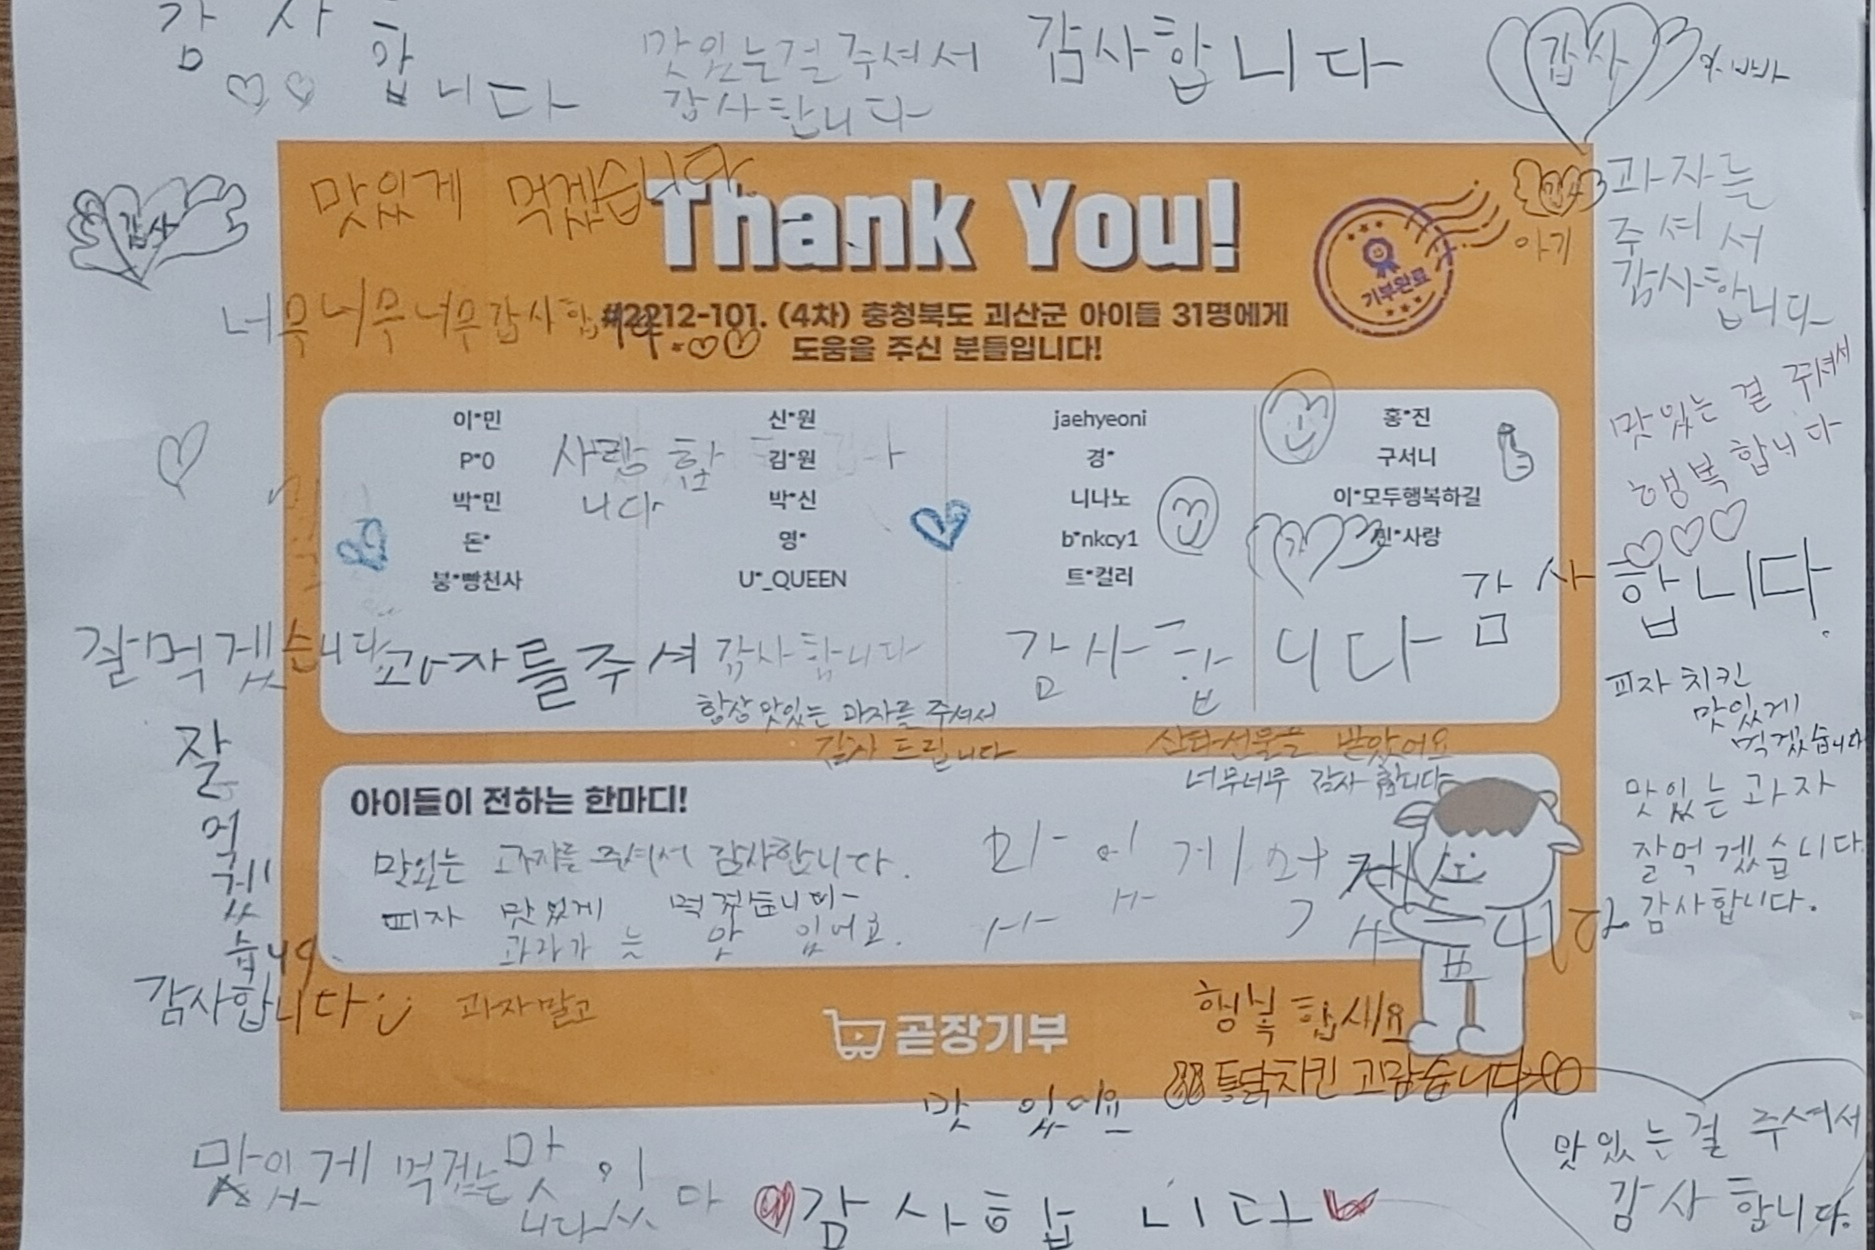 감사합니다
맛있는걸 주셔서
감사합니다
감사합니다
감사
감사
맛있게 먹겠습니다
Thank You!
기부완료
아기
과자를
주셔서
감사합니다
너무너무너무감사합니다
#2212-101. (4차) 충청북도 괴산군 아이들 31명에게
도움을 주신 분들입니다!
맛있는 걸 주셔서
행복합니다
이*민 신*원 jaehyeoni 홍*진
P*0 김*원 경* 구서니
박*민 박*신 니나노 이*모두행복하길
돈* 영* b*nkcy1 민*사랑
붕*빵천사 U*_QUEEN 트*컬러
사랑합
니다
감사합니다.
잘먹겠습니다
과자를주셔 감사합니다
감사합니다
항상 맛있는 과자를 주셔서
감사 드립니다
산타선물을 받았어요
너무너무 감사합니다
피자 치킨
맛있게
먹겠습니다
잘
먹
겠
습니다
아이들이 전하는 한마디!
맛있는 과자를 주셔서 감사합니다.
피자 맛있게 먹겠습니다
맛있는 과자
잘먹겠습니다
감사합니다.
감사합니다
과자말고
행복 합세요
곧장기부
통닭치킨 고맙습니다
맛 있어요
맛있게
맛있는걸 주셔서
감사합니다.
감사합니다